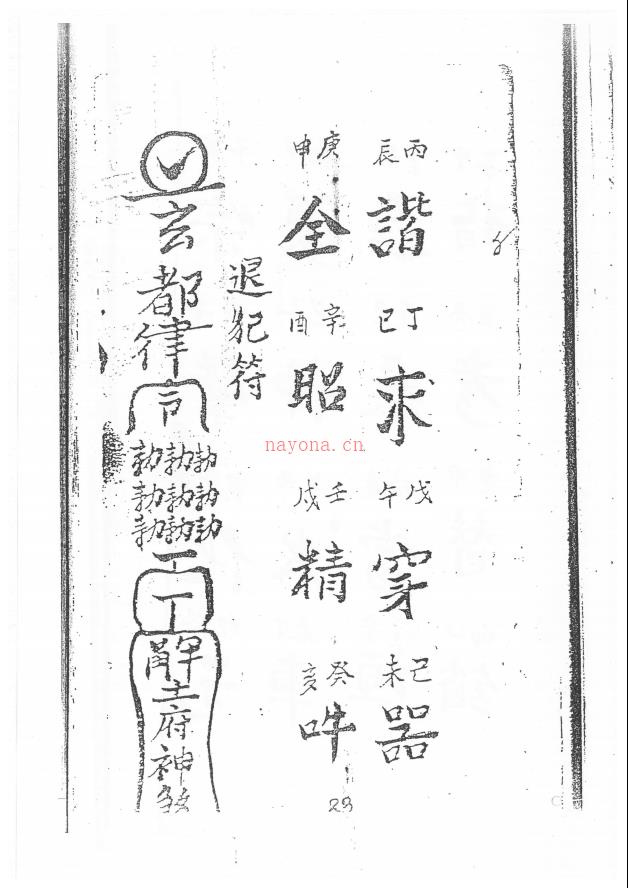 丙辰
諧
丁巳
求
戊午
穿
己未
器
庚申
全
辛酉
昭
壬戌
精
癸亥
吽
退犯符
玄都律令
勅勅勅
勅勅勅
勅勅勅
解土府神煞
28
nayona.cn